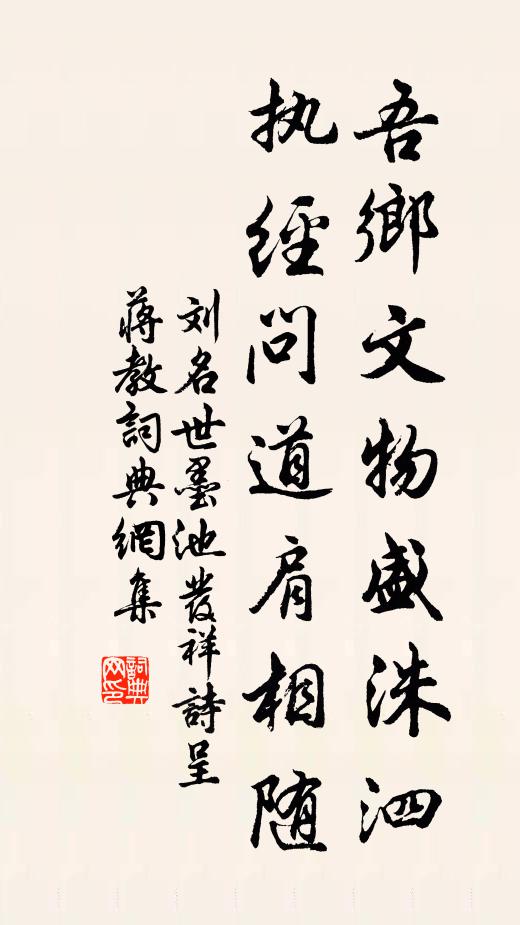 吾鄉文物盛洙泗
执經問道肩相随
刘名世墨池發祥詩呈
蔣教詞典網集
詞典網印